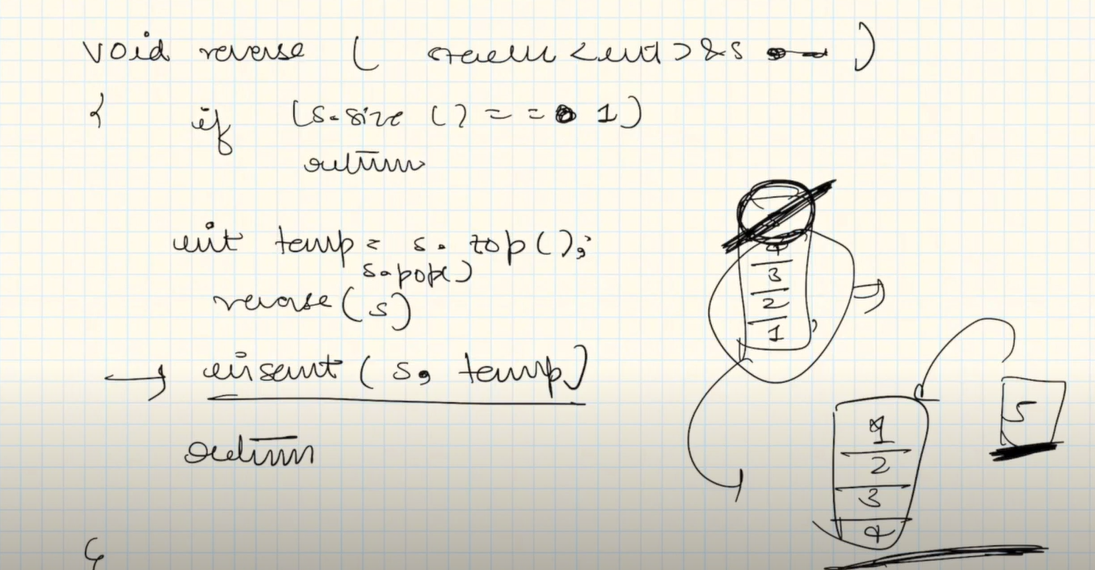 void reverse ( stack <int> &s )
{ if (s.size () == 1)
return
int temp = s.top();
s.pop()
reverse(s)
→ insert (s, temp)
return
}
4
3
2
1
5
1
2
3
4